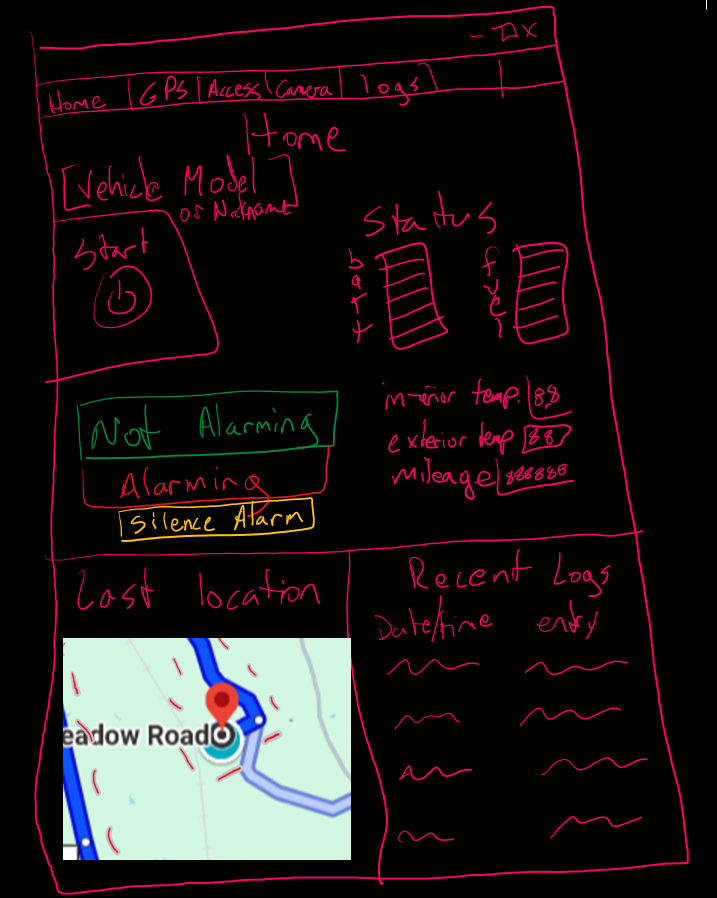 - □ X
Home GPS Access Camera logs
Home
[Vehicle Model]
or Nickname
Start
Status
batt
fuel
interior temp. 88
exterior temp 88
mileage 888888
Not Alarming
Alarming
Silence Alarm
Last location
eadow Road
Recent Logs
Date/time entry